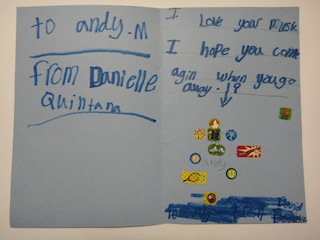 to andy.M
From Danielle
Quintana
I love your music
I hope you come
agin when you go
away.!?
andy